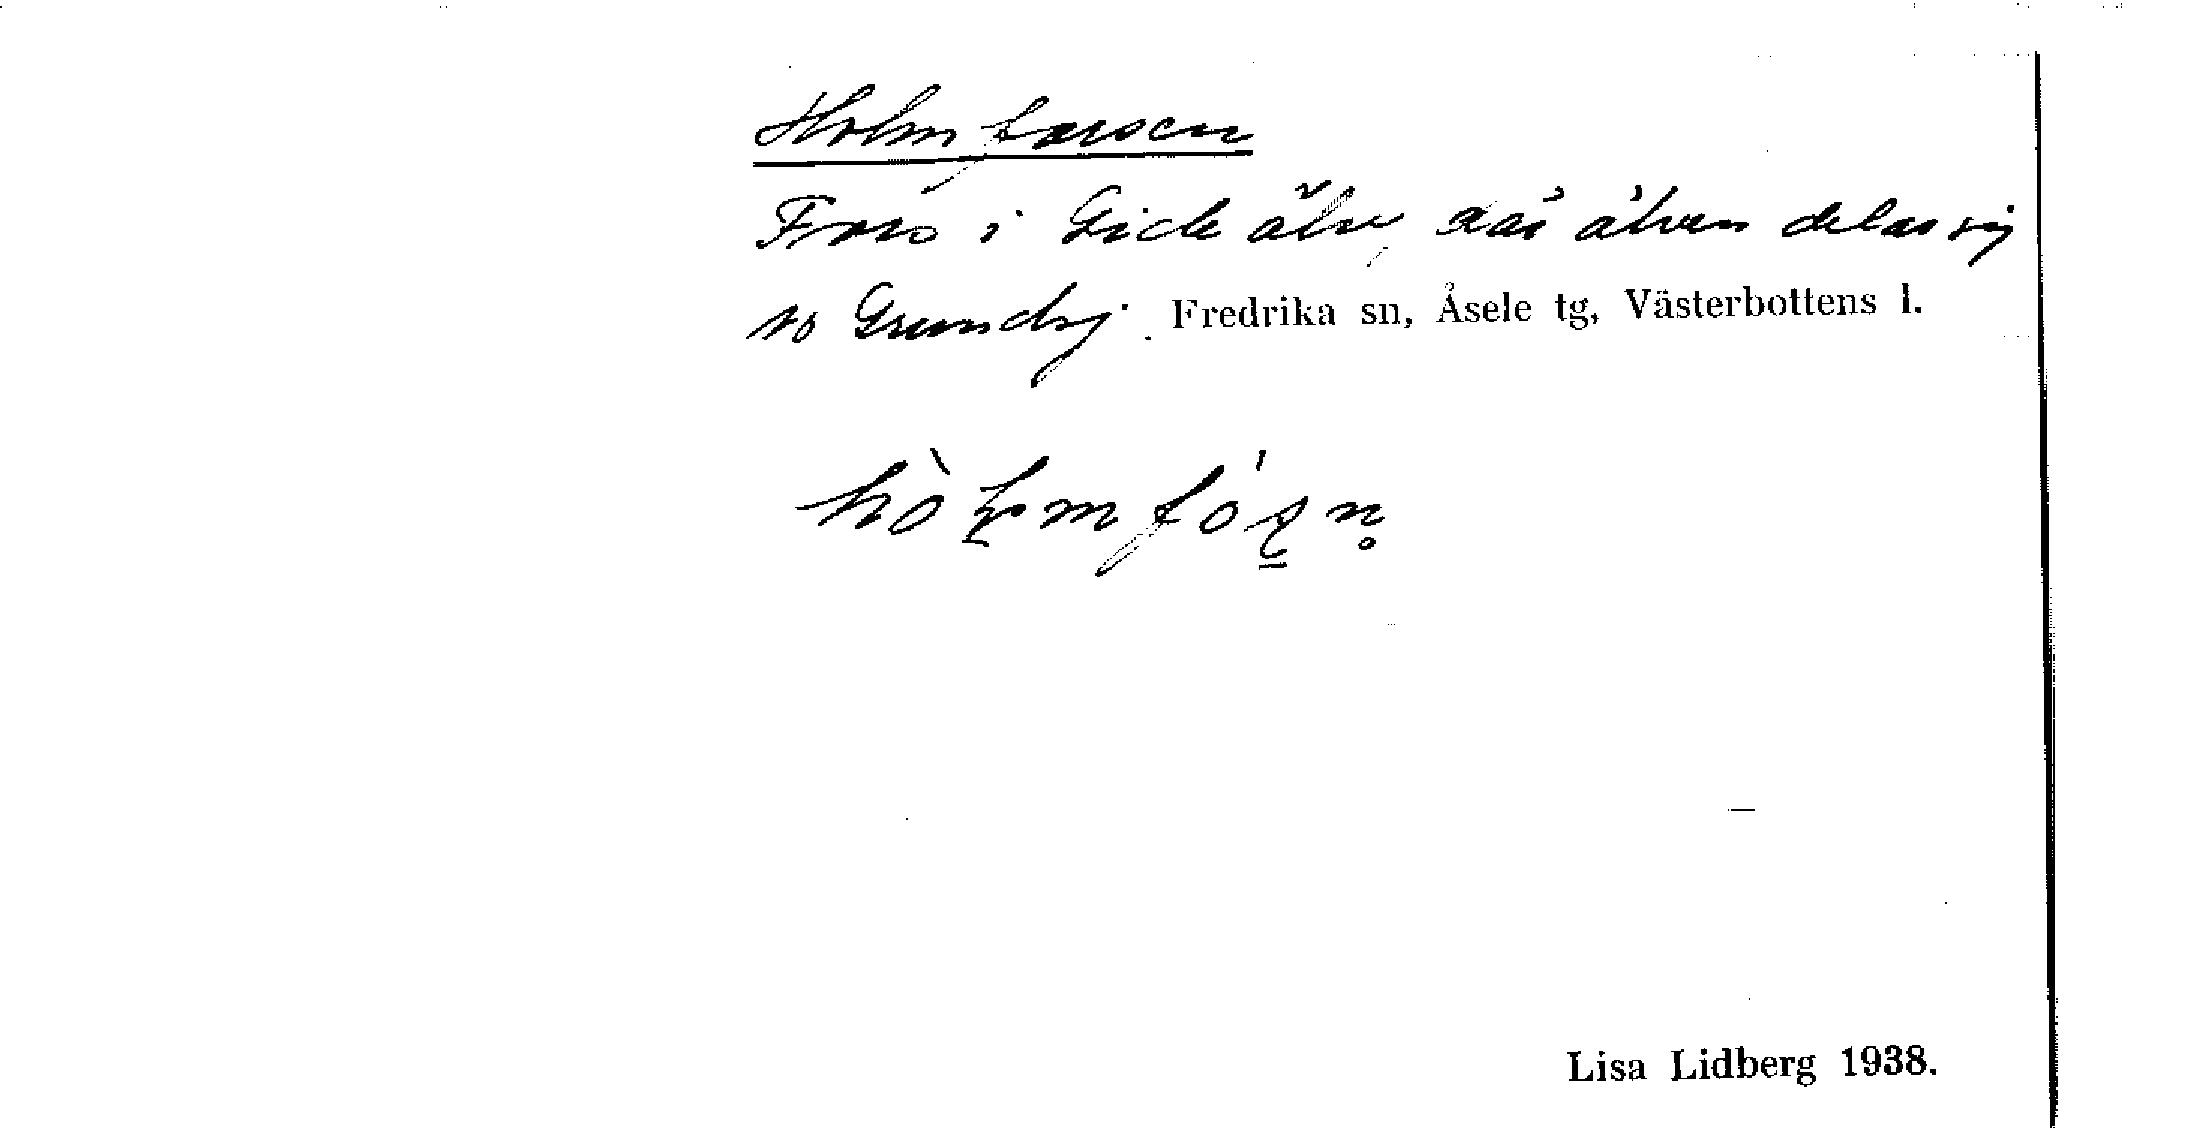 Holmforsen
Fors i Gideälv, där älven delar sig
so Grundsj. Fredrika sn, Åsele tg, Västerbottens l.
Lisa Lidberg 1938.